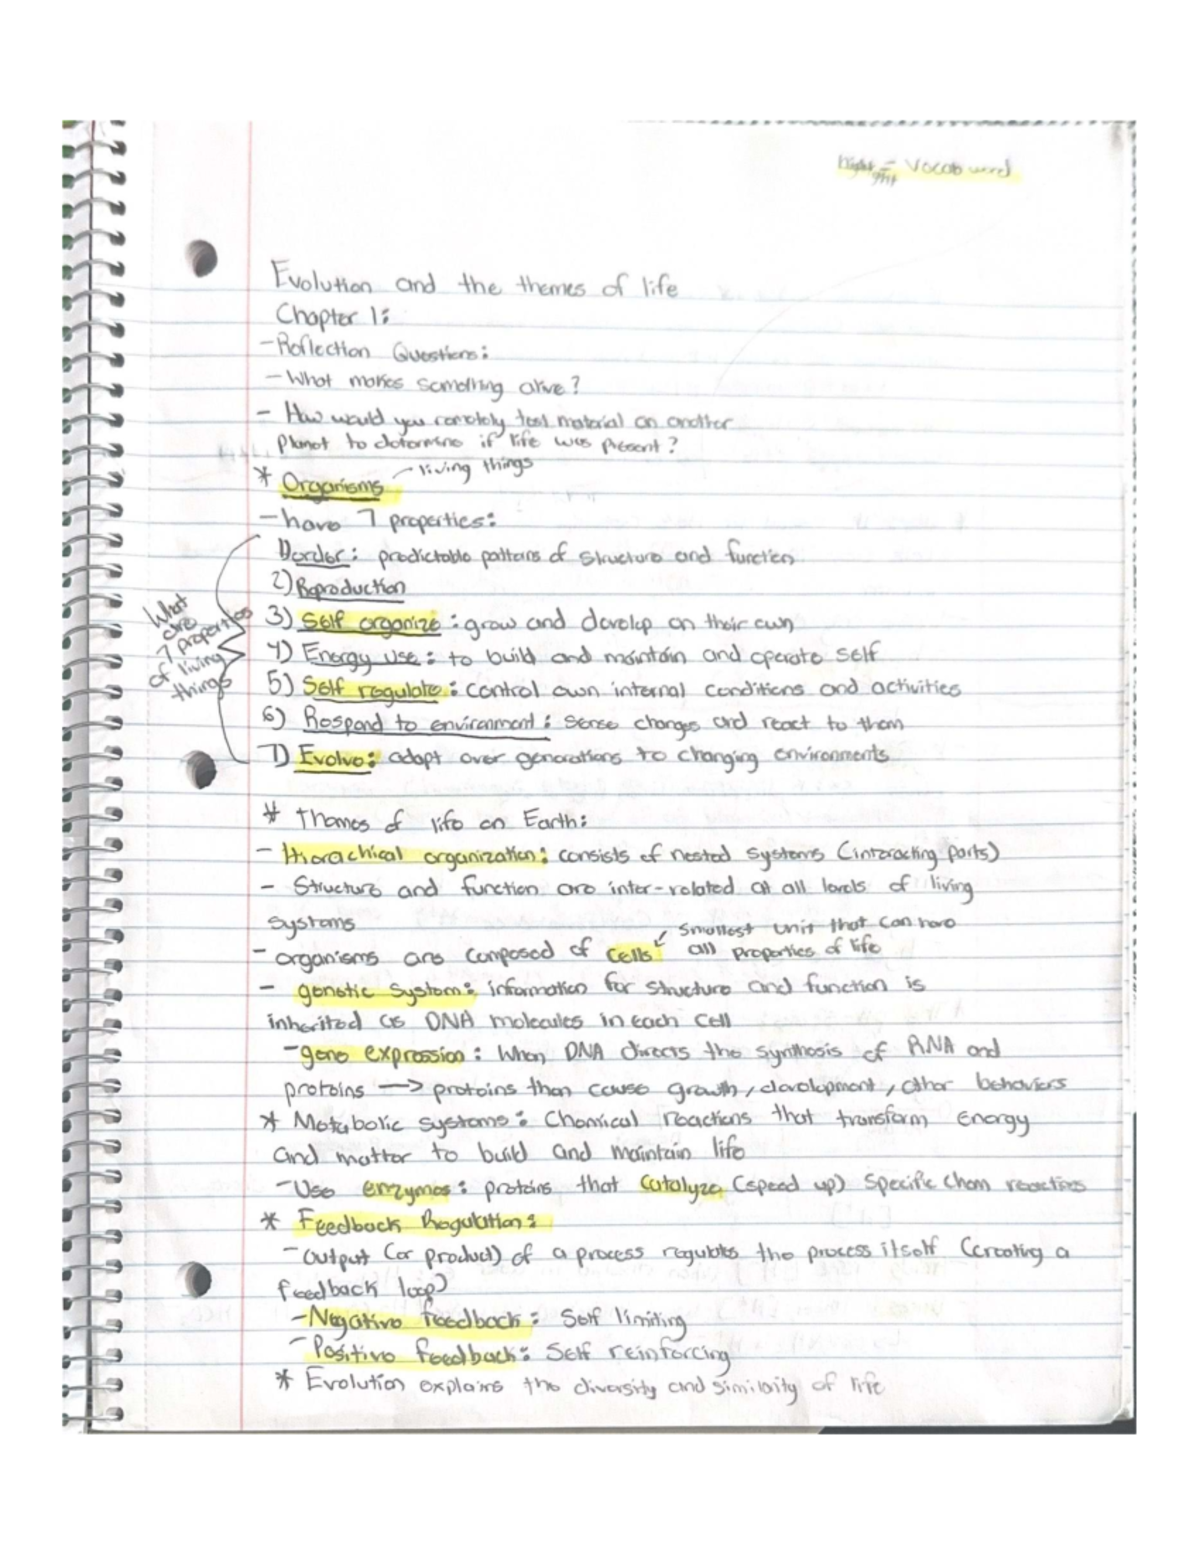 highlight = Vocab word
Evolution and the themes of life
Chapter 1:
- Reflection Questions:
- What makes something alive?
- How would you remotely test material on another
planet to determine if life was present?
* Organisms - living things
- have 7 properties:
1) order: predictable patterns of structure and function
2) Reproduction
3) Self organize: grow and develop on their own
4) Energy use: to build and maintain and operate self
What
are
7 properties
of living
things
5) Self regulate: control own internal conditions and activities
6) Respond to environment: sense changes and react to them
7) Evolve: adapt over generations to changing environments
* Themes of life on Earth:
- Hierachical organization: consists of nested systems (interacting parts)
- Structure and function are inter-related at all levels of living
systems
- organisms are composed of cells ↙ smallest unit that can have
all properties of life
- genetic system: information for structure and function is
inherited as DNA molecules in each cell
- gene expression: When DNA directs the synthesis of RNA and
proteins → proteins then cause growth, development, other behaviors
* Metabolic systems: Chemical reactions that transform energy
and matter to build and maintain life
- Use enzymes: proteins that catalyze (speed up) specific chem reactions
* Feedback Regulation:
- output (or product) of a process regulates the process itself (creating a
feedback loop)
- Negative feedback: Self limiting
- Positive feedback: Self reinforcing
* Evolution explains the diversity and similarity of life